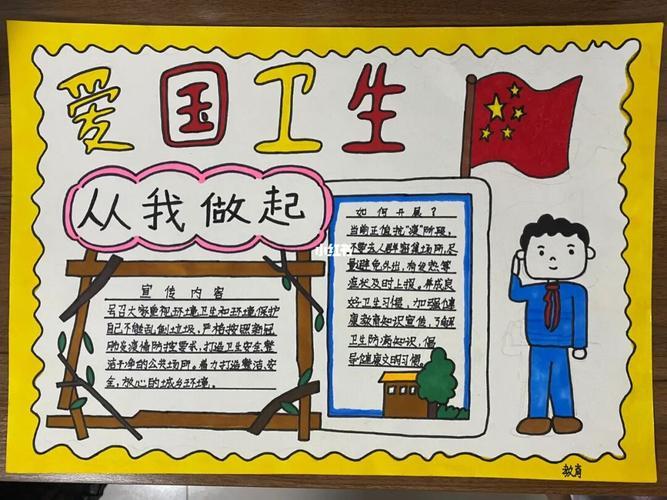 爱国卫生
从我做起
小红书
宣传内容
号召大家重视环境卫生和环境保护
自己不能乱倒垃圾,严格按照新冠
肺炎疫情防控要求,打造卫生安全,整
洁干净的公共场所。着力打造整洁,安
全,放心的城乡环境。
如何开展?
当前正值抗"疫"阶段,
不要去人群密集场所,尽
量避免外出,有发热等
症状及时上报,养成良
好卫生习惯,加强健
康教育知识宣传,了解
卫生防病知识,倡
导健康文明习惯。
教育